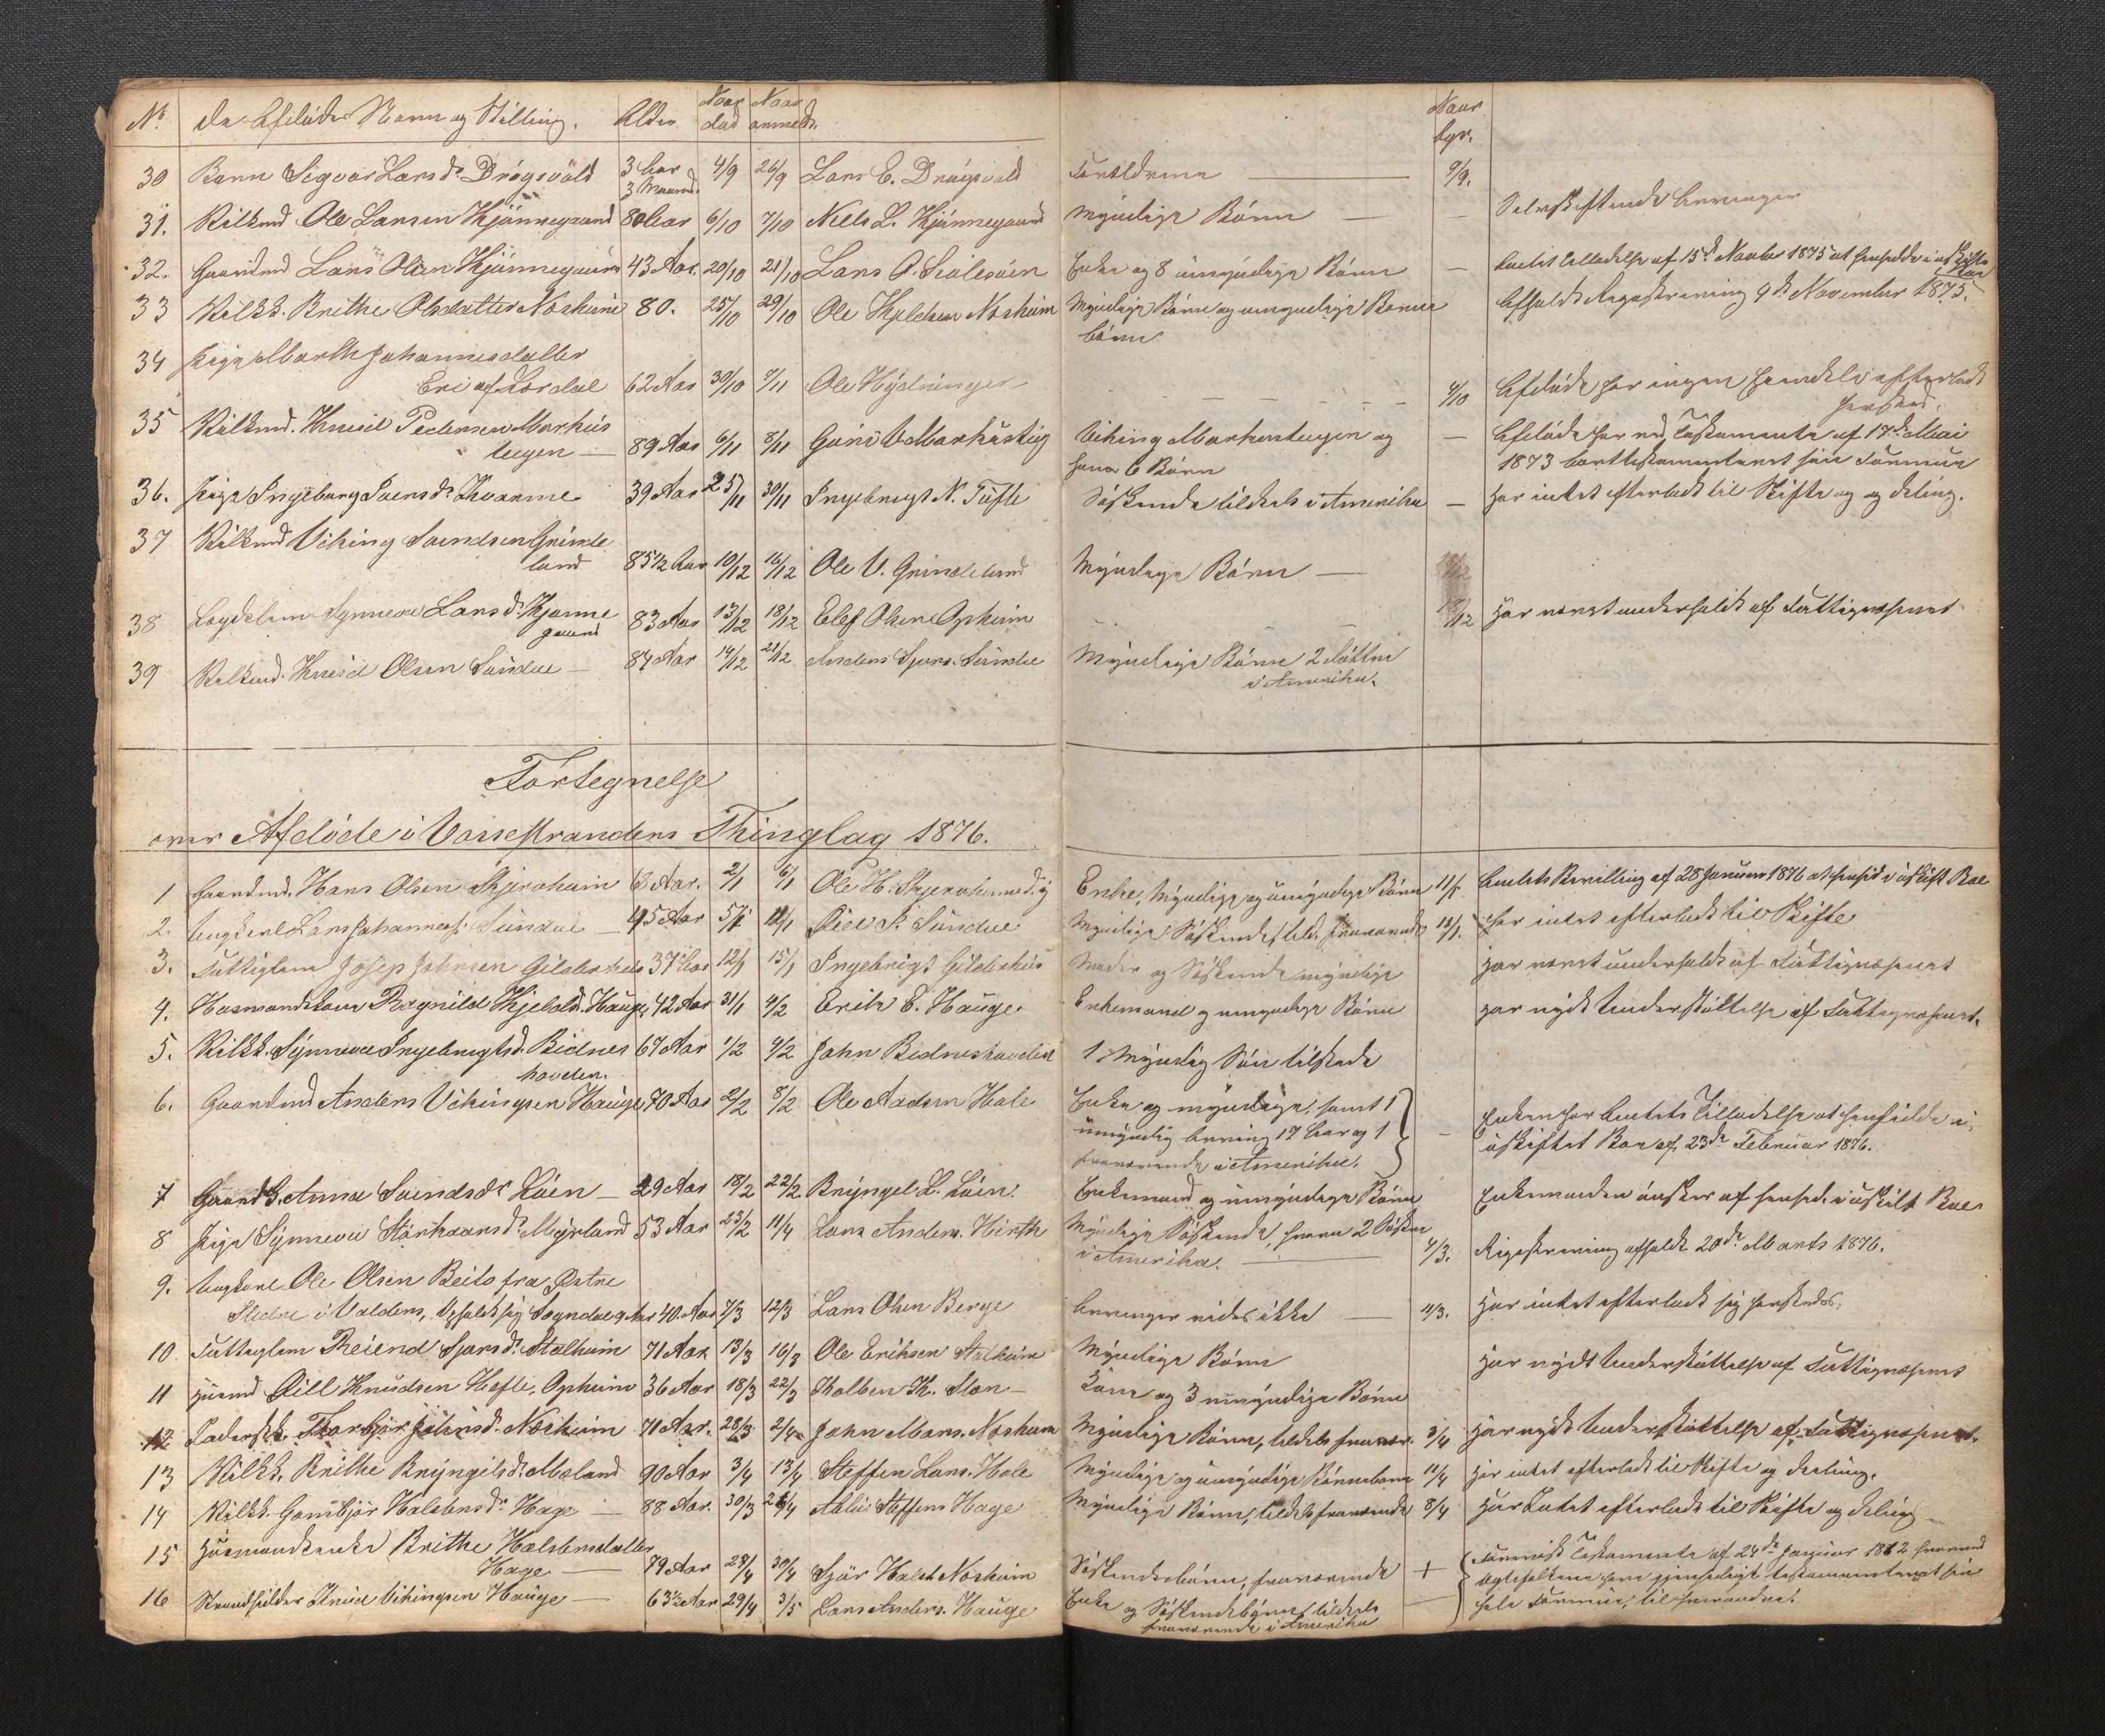 No. De Afdødes Navn og Stilling. Alder Naar død Naar anmeldt. Naar begr.
30 Barn Sigvor Larsdr. Drøgsvold 3 Aar 3 Maaned. 4/9 26/9 Lars E. Drøgsvold Forældrene — 9/9.
31. Kilkmd Ole Larsen Kjønnegaard 80 Aar 6/10 7/10 Niels L. Kjønnegaard Myndige Børn — — Selvskiftende Arvinger
32. Gaardmd Lars Olsen Kjønnegaard 43 Aar. 20/10 21/10 Lars O. Enke og 8 umyndige Børn — Amtets Tilladelse af 15de Novbr 1875 at hensidde i uskiftet Boe
33 Kilkk. Brithe Olsdatter Nosheim 80. 25/10 29/10 Ole Kjeldsen Nosheim Myndige Børn og umyndige Børne Afholdt Registrering 9de November 1875.
børn
34 Pige Marthe Johannesdatter
Eri af Lærdal 62 Aar 30/10 7/11 Ole Hydninger — — — — — 4/10 Afdøde har ingen Hændele efterladt
35 Kilkmd. Knud Pedersen Markhus
teigen — 89 Aar 6/11 8/11 V. Markhusteig Viking Markhusteigen og — Afdøde har ved Testamente af 17de Mai
hans 6 Børn 1873 borttestamenteret sin Formue
36. Pige Ingeborg Svensdr. Kvarme 39 Aar 25/11 30/11 Ingebrigt N. Tufte Søskende tildels i Amerika — Har intet efterladt til Skifte og og deling.
37 Kilkmd Viking Sveindsen Grinde
land 85½ Aar 10/12 16/12 Ole V. Grindeland Myndige Børn — 18/12
38 Lægdslem Synneve Larsdr. Kjønne
gaard 83 Aar 13/12 18/12 Elef Olsen Opheim — — 18/12 Har været underholdt af Fattigvæsenet
39 Kilkmd. Knud Olsen Sundve — 84 Aar 14/12 21/12 Anders Sjurs. Sundve Myndige Børn 2 Døttre
i Amerika.
Fortegnelse
over Afdøde i Vossestrandens Thinglag 1876.
1 Gaardmd. Hans Olsen Skjerveheim 63 Aar. 2/1 6/1 Ole H. Skjerveheim Enke, Myndige og umyndige Børn 11/1 Amtets Bevilling af 28 Januar 1876 at hensid. i uskift. Boe
2. Ungkarl Lars Johannes. Sundve — 45 Aar 5/1 11/1 Sundve Myndige Søskende, tild. fraværende 13/1. Har intet efterladt til Skifte
3. Fattiglem Josep Johnsen Gilderhus 37 Aar 12/1 15/1 Ingebrigt Gilderhus Moder og Søskende myndige Har været underholdt af Fattigvæsenet
4. Husmandskone Ragnild Kjeldsd. Hauge 42 Aar 31/1 4/2 Erik E. Hauge Enkemand og umyndige Børn Har nydt Understøttelse af Fattigvæsenet.
5. Kilkk. Synneva Ingebrigtsd. Bidnes 67 Aar 1/2 4/2 John Bidneshovden 1 Myndig Søn tilstede
hovden.
6. Gaardmd Anders Vikingsen Hauge 70 Aar 2/2 8/2 Ole Aadsen Hole Enke og myndige, samt 1 — Enken har Amtets Tilladelse at hensidde i
umyndig Arving 17 Aar og 1 uskiftet Boe af 23de Februar 1876.
fraværende i Amerika.
7 Gaardk. Anna Sveindsdr. Løen — 29 Aar 18/2 22/2 Bryngel L. Løen. Enkemand og umyndige Børn Enkemanden ønsker at hensid. i uskift Boe
8 Pige Synneve Storkaarsdr. Myrland 53 Aar 23/2 11/4 Lars Anders. Hirth Myndige Søskende, hvoraf 2 Søstre
i Amerika. — 4/3. Registrering afholdt 20de Marts 1876.
9. Ungkarl Ole Olsen Beito fra Østre
Slidre i Valders, opholdt sig Sogndal 9 Aar 40. Aar 7/3 12/3 Lars Olsen Berge Arvinger vides ikke — 11/3. Har intet efterladt sig
10 Fattiglem Reiend Sjursdr. Stalheim 71 Aar 13/3 16/3 Ole Eriksen Stalheim Myndige Børn Har nydt Understøttelse af Fattigvæsenet
11 Husmd Knudsen Hefte, Opheim 36 Aar 18/3 22/3 Kolben K. Sløn — Kone og 3 umyndige Børn
12 Thorbjør Johnsd. Nosheim 71 Aar. 28/3 2/4 John Mons. Nosheim Myndige Børn, tildels fravær. 3/4 Har nydt Understøttelse af Fattigvæsenet.
13 Kilkk. Brithe Bryngelsdr. Møland 90 Aar 3/4 13/4 Steffen Lars. Hole Myndige og umyndige Børnebørn 11/4 Har intet efterladt til Skifte og deeling.
14 Kilkk. Gunbjør Halstensdr. Hage — 88 Aar. 30/3 Steffens Hage Myndige Børn, tildels fraværende 8/4 Har Intet efterladt til Skifte og deling —
15 Husmandsenke Brithe Halstensdatter
Hage — 79 Aar 24/4 30/4 Sjur Halst. Nosheim Søskendebørn, fraværende + Testamente af 24de Januar 1862 hvorved
16 Strandsidder Knud Vikingsen Hauge — 63½ Aar 29/4 3/5 Lars Anders. Hauge Enke og Søskendebørn, tildels — Ægtefolkene have gjensidigt testamenteret sin
fraværende i Amerika hele Formue, til hverandre.